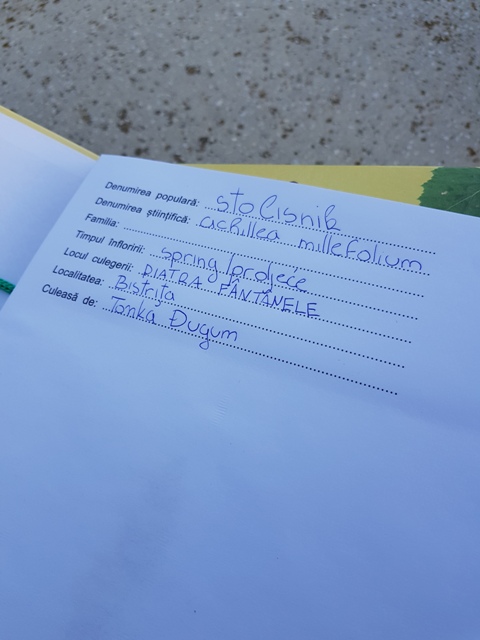 Denumirea populară: stolisnik
Denumirea științifică: achillea millefolium
Familia:
Timpul înfloririi: spring / proljeće
Locul culegerii: PIATRA FÂNTÂNELE
Localitatea: Bistrița
Culeasă de: Tonka Đugum